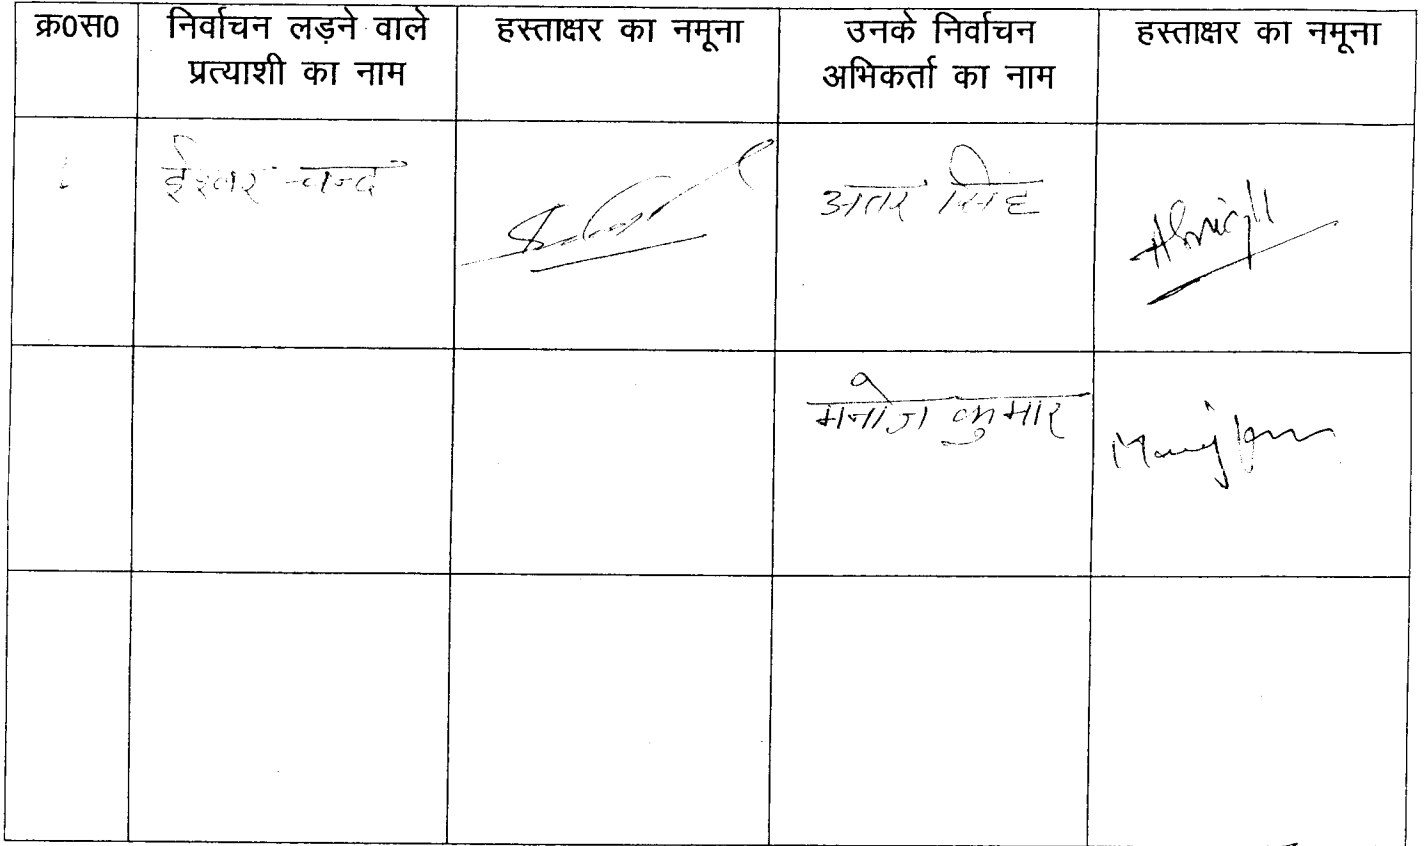 क्र0स0 निर्वाचन लड़ने वाले प्रत्याशी का नाम हस्ताक्षर का नमूना उनके निर्वाचन अभिकर्ता का नाम हस्ताक्षर का नमूना
ईश्वर चन्द अतर सिंह
मनोज कुमार